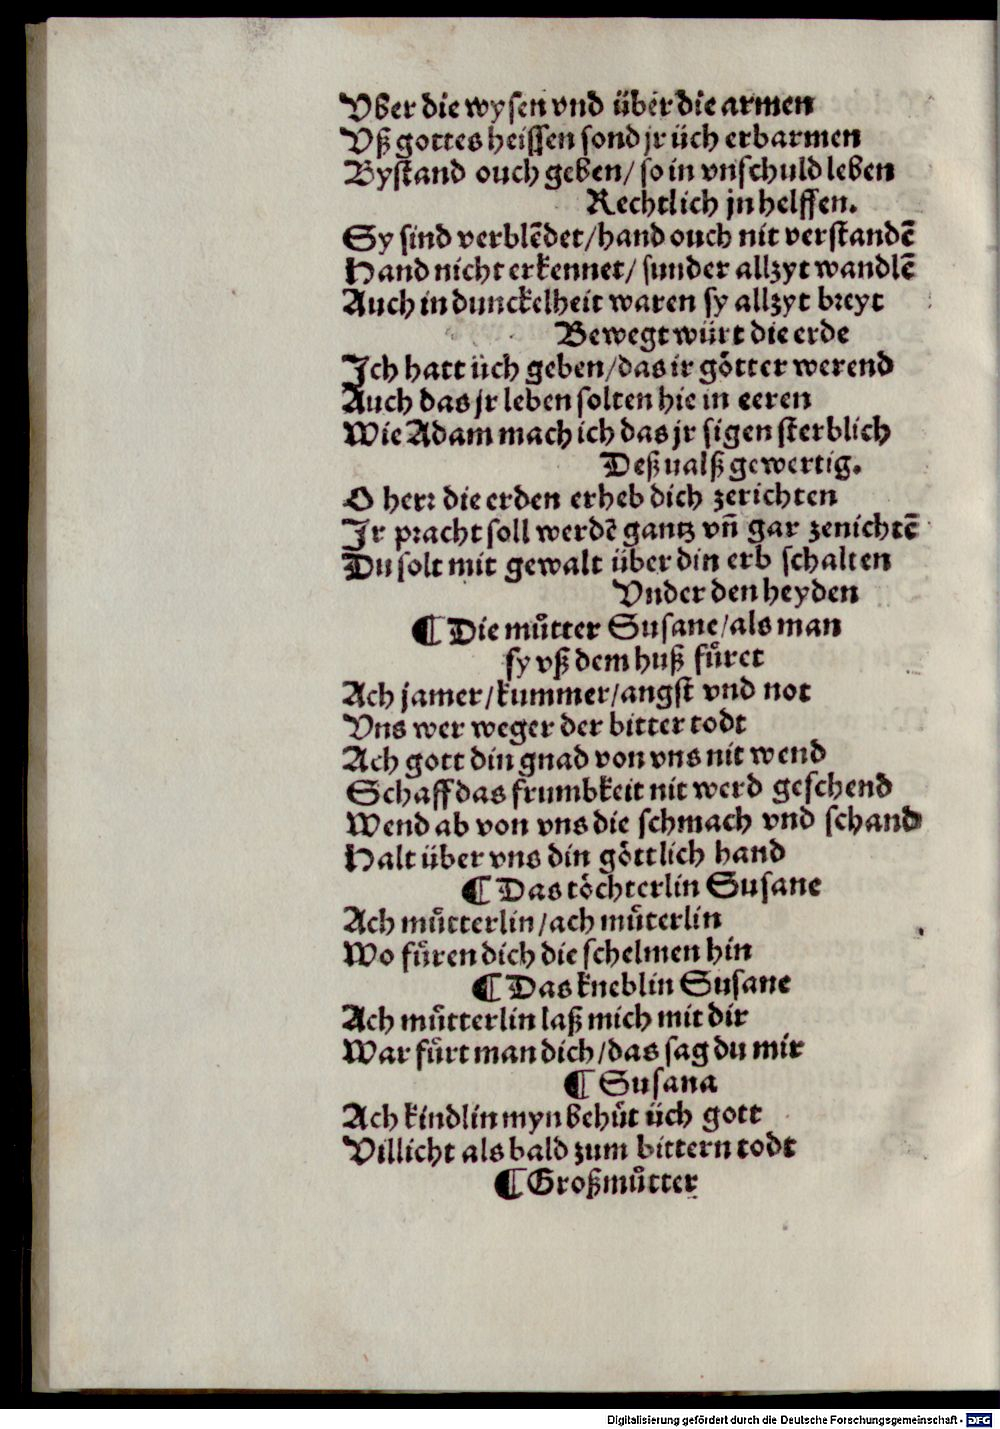 Vber die wysen vnd über die armen
Vß gottes heissen sond jr üch erbarmen
Bystand ouch geben/ so in vnschuld leben
Rechtlich jn helffen.
Sy sind verblēdet/hand ouch nit verstandē
Hand nicht erkennet/ sunder allzyt wandlē
Auch in dunckelheit waren sy allzyt breyt
Bewegt würt die erde
Ich hatt üch geben/das ir götter werend
Auch das jr leben solten hie in eeren
Wie Adam mach ich das jr sigen sterblich
Deß ualß gewertig.
O herr die erden erheb dich zerichten
Ir pracht soll werdē gantz vñ gar zenichtē
Du solt mit gewalt über din erb schalten
Vnder den heyden
¶ Die muͦtter Susane/als man
sy vß dem huß fuͤret
Ach jamer/kummer/angst vnd not
Vns wer weger der bitter todt
Ach gott din gnad von vns nit wend
Schaff das frumbkeit nit werd geschend
Wend ab von vns die schmach vnd schand
Halt über vns din göttlich hand
¶ Das töchterlin Susane
Ach muͤtterlin/ach muͤterlin
Wo fuͤren dich die schelmen hin
¶ Das kneblin Susane
Ach muͤtterlin laß mich mit dir
War fuͤrt man dich/das sag du mir
¶ Susana
Ach kindlin myn behuͤt üch gott
Villicht als bald zum bittern todt
¶ Großmuͦtter
Digitalisierung gefördert durch die Deutsche Forschungsgemeinschaft - DFG